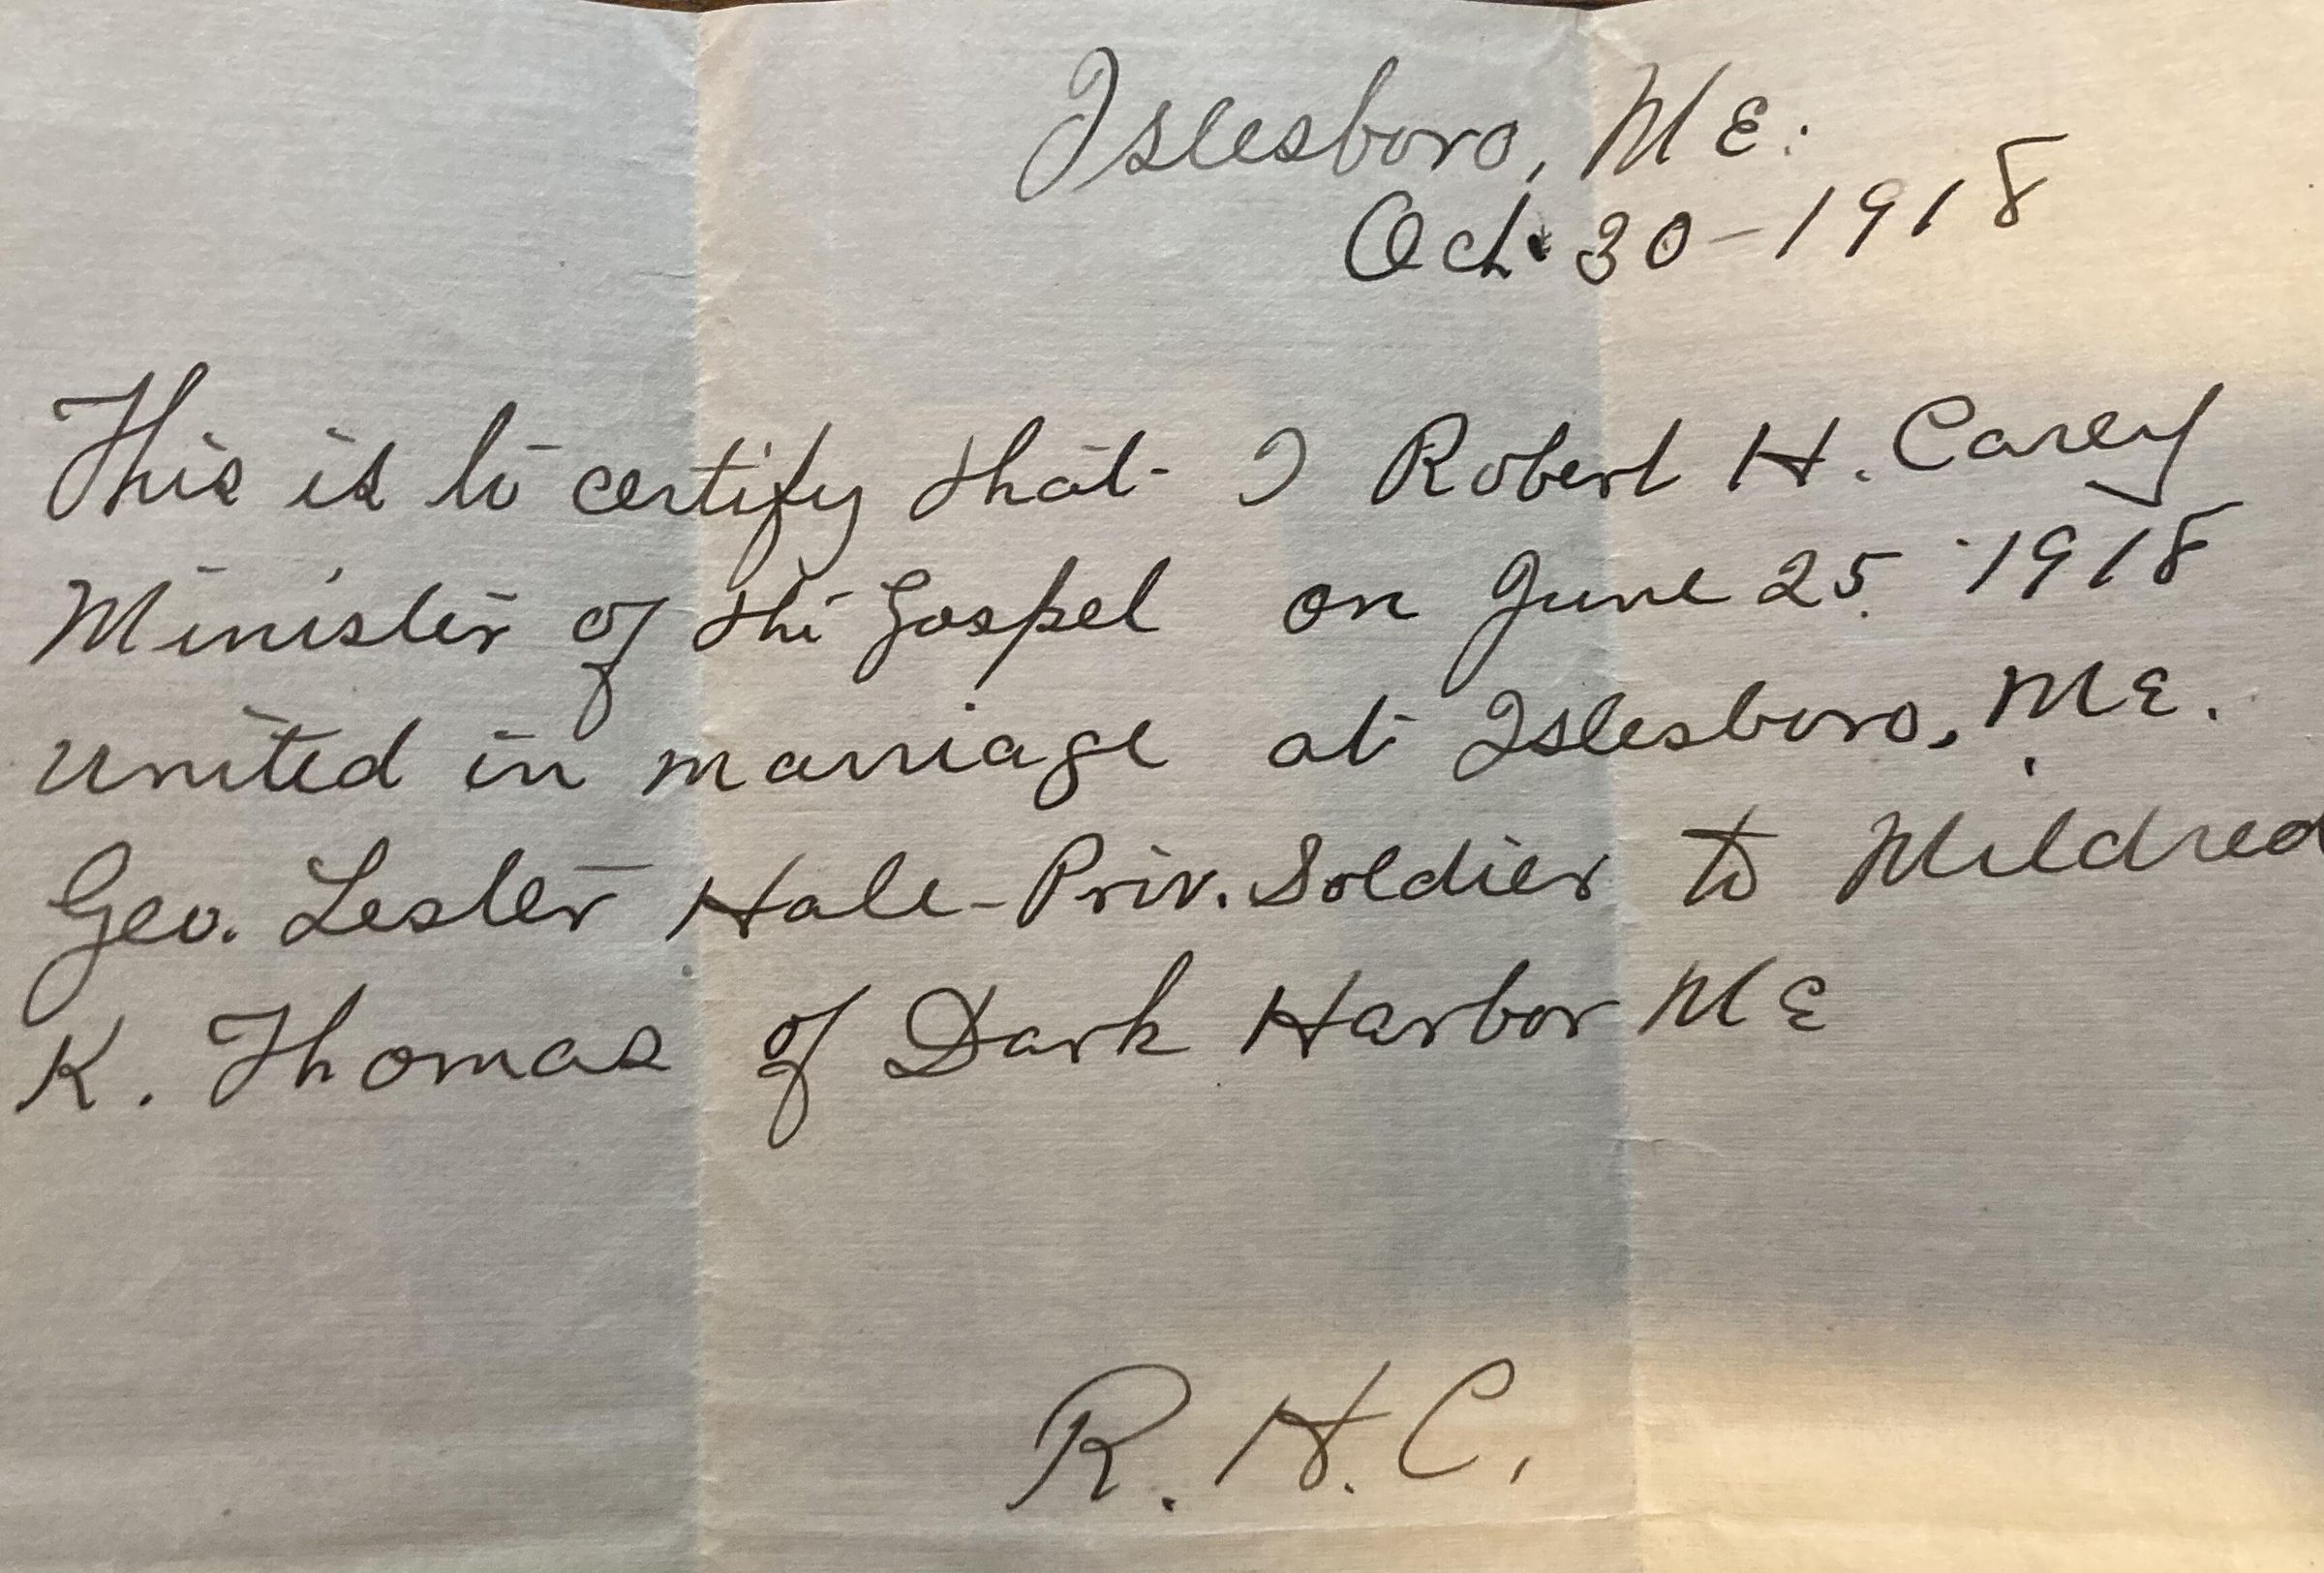 Islesboro, ME.
Oct. 30-1918
This is to certify that I Robert H. Carey
Minister of the Gospel on June 25 1918
united in marriage at Islesboro, ME.
Geo. Lester Hale-Priv. Soldier to Mildred
K. Thomas of Dark Harbor ME
R. H. C.